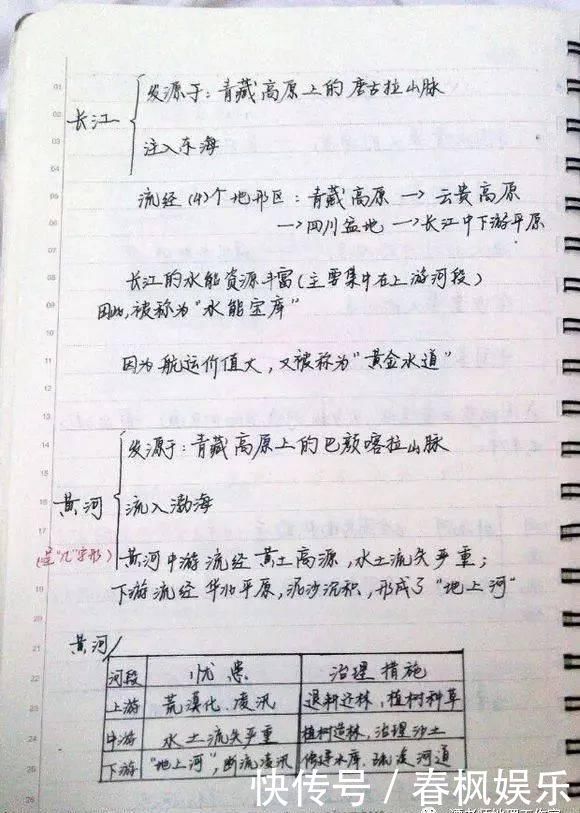 发源于：青藏高原上的唐古拉山脉
长江
注入东海
流经(4)个地形区：青藏高原→云贵高原
→四川盆地→长江中下游平原
长江的水能资源丰富(主要集中在上游河段)
因此,被称为"水能宝库"
因为航运价值大,又被称为"黄金水道"
发源于：青藏高原上的巴颜喀拉山脉
黄河
流入渤海
(呈"几"字形)
黄河中游流经黄土高源,水土流失严重;
下游流经华北平原,泥沙沉积,形成了"地上河"
黄河
河段 忧患 治理措施
上游 荒漠化、凌汛 退耕还林,植树种草
中游 水土流失严重 植树造林,治理沙土
下游 "地上河",断流凌汛 修建水库、疏浚河道
快传号/春枫娱乐